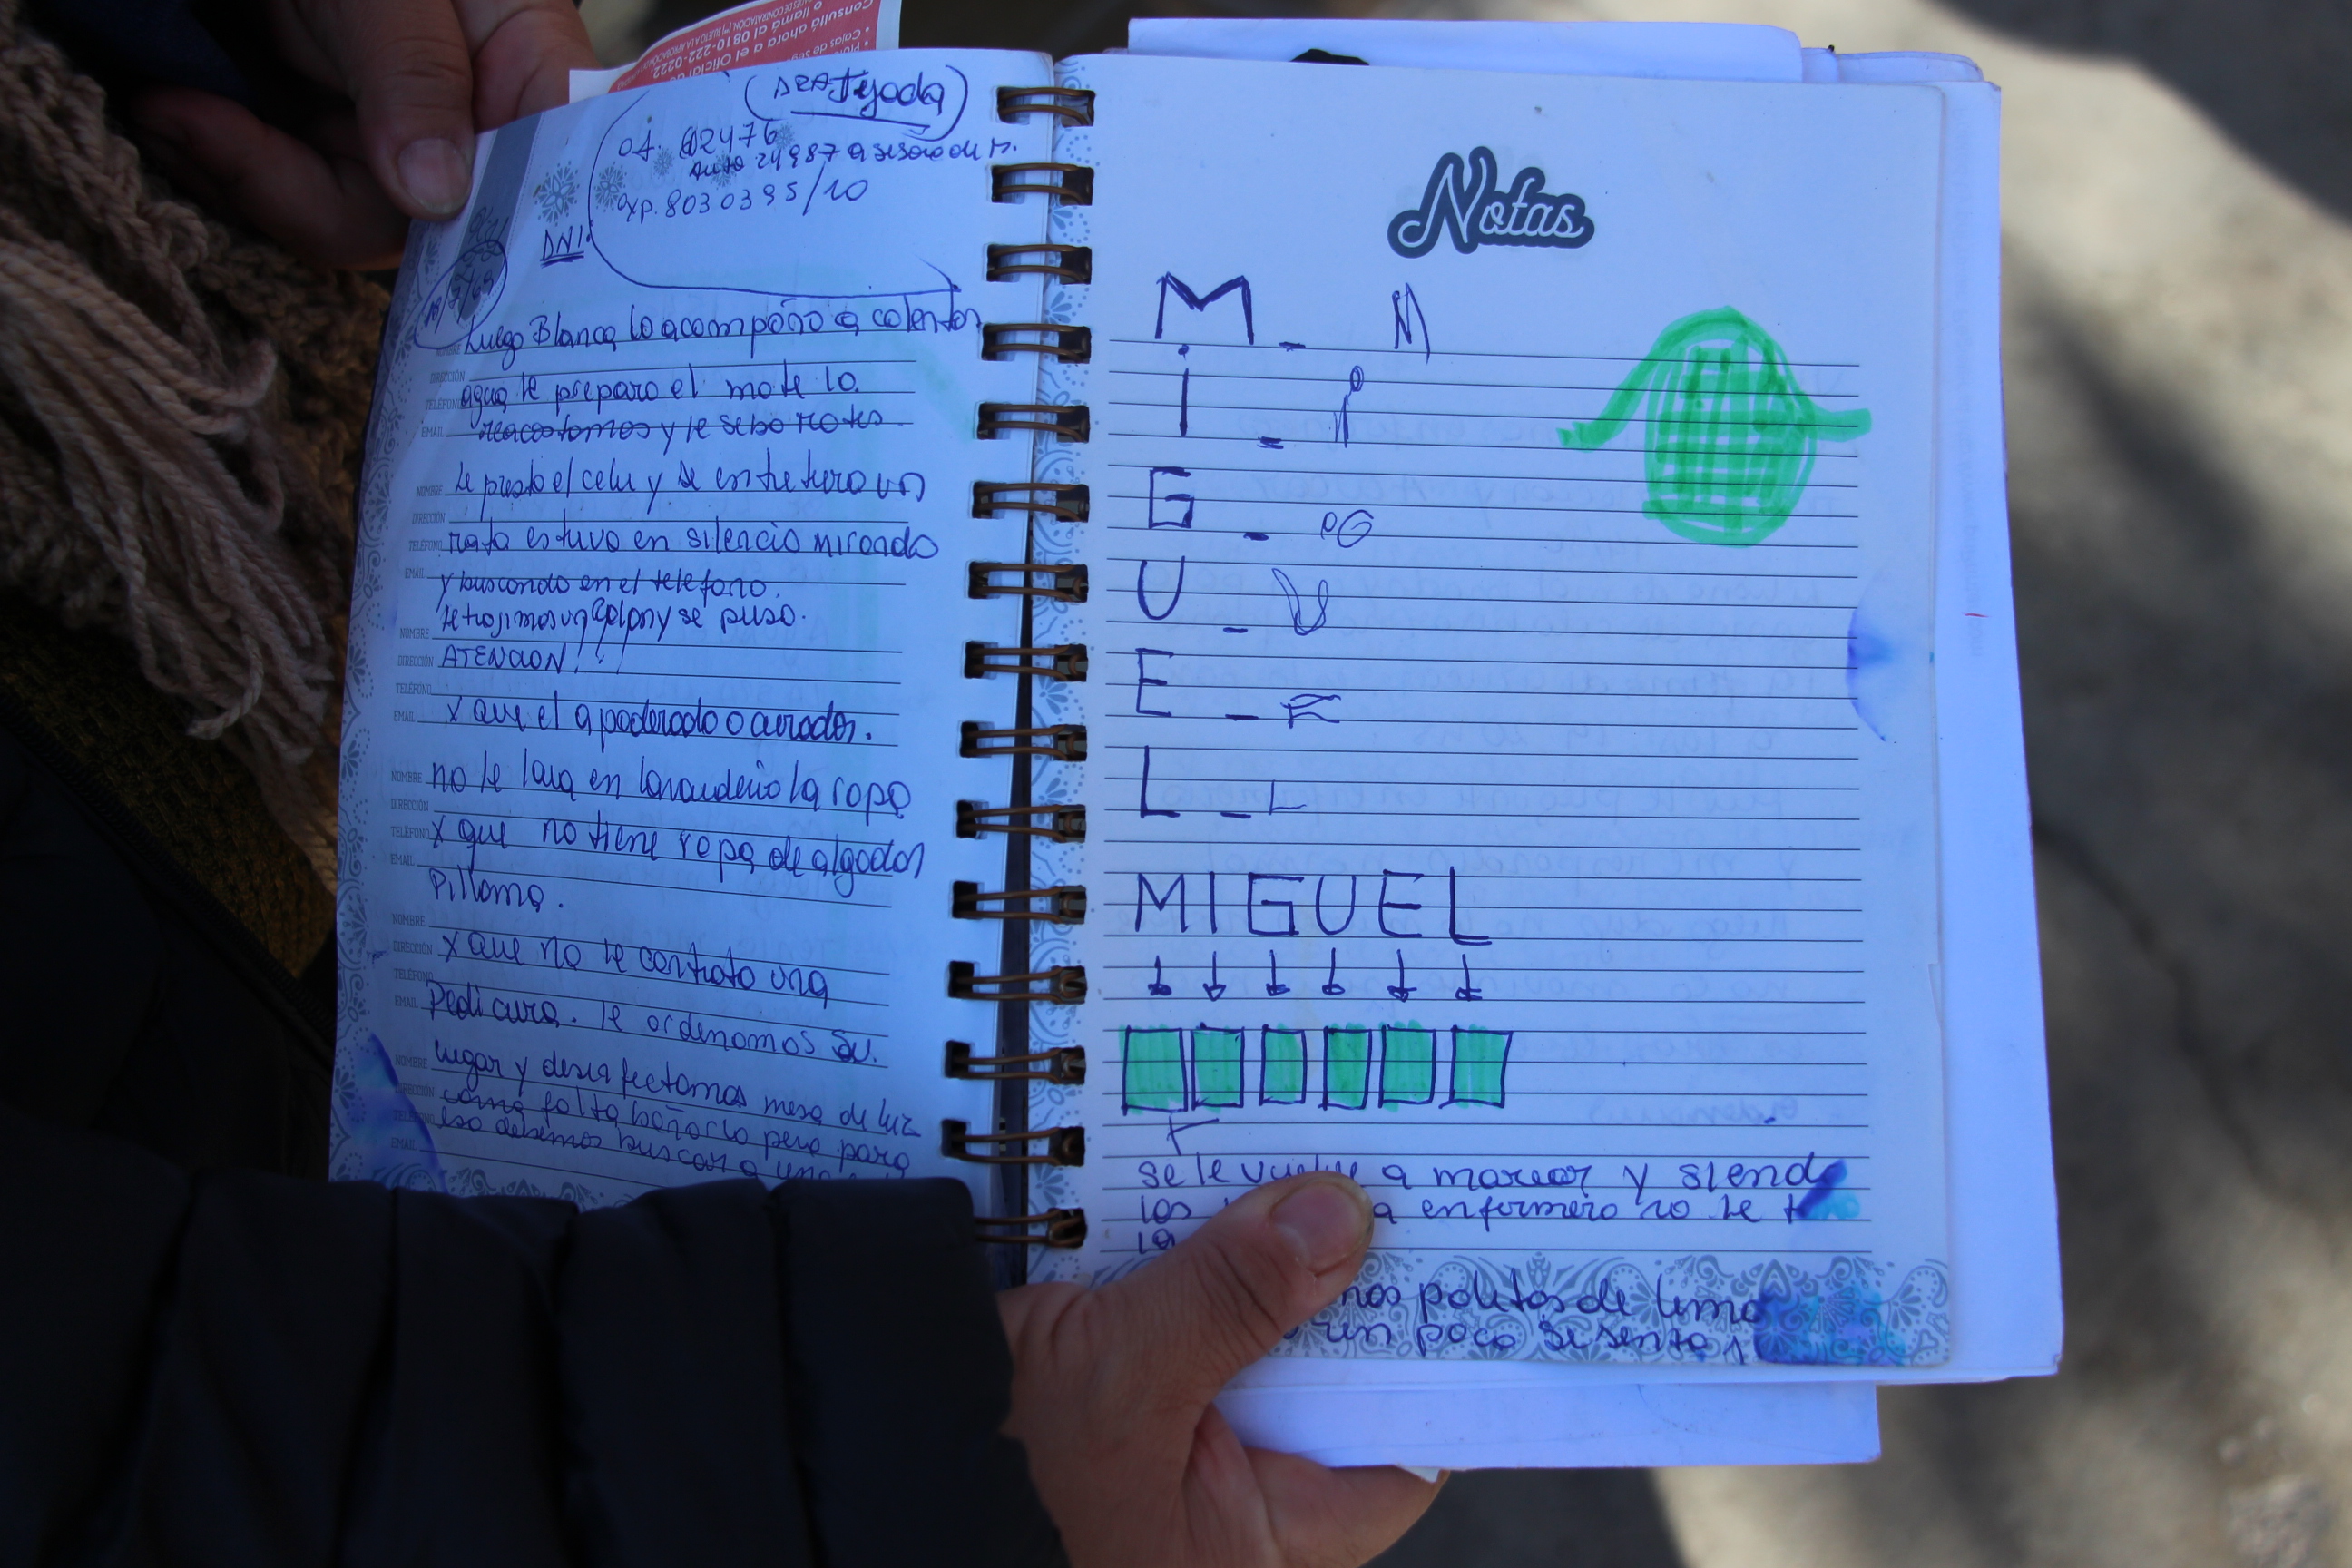 Consultá ahora a el Oficial
o llamá al 0810-222-0222.
(DRA Tejada)
of. 02476
Auto 24987 asesora de M.
exp. 8030395/10
DNI:
Luego Blanca lo acompaño a calentar
NOMBRE
DIRECCIÓN
agua le preparo el mate lo
TELÉFONO
EMAIL
reacostamos y le sebo mates.
le presto el celu y se entretuvo un
NOMBRE
DIRECCIÓN
rato estuvo en silencio mirando
TELÉFONO
EMAIL
y buscando en el telefono.
le trajimos un y se puso.
NOMBRE
DIRECCIÓN
ATENCION!!!
TELÉFONO
EMAIL
x que el apoderado o curador.
NOMBRE
no le lava en lavanderia la ropa
DIRECCIÓN
TELÉFONO
x que no tiene ropa de algodon
EMAIL
Pillama.
NOMBRE
DIRECCIÓN
x que no le contrato una
TELÉFONO
EMAIL
Pedicura. le ordenamos su.
NOMBRE
lugar y desinfectamos mesa de luz
DIRECCIÓN
como falta bañarlo pero para
TELÉFONO
eso debemos buscar a
EMAIL
Notas
M _ M
i _ i
G _ G
U _ U
E _ E
L _ L
MIGUEL
se le vuelve a marcar y siendo
los a enfermero no le
la
poletos de lemo
un poco se sento y